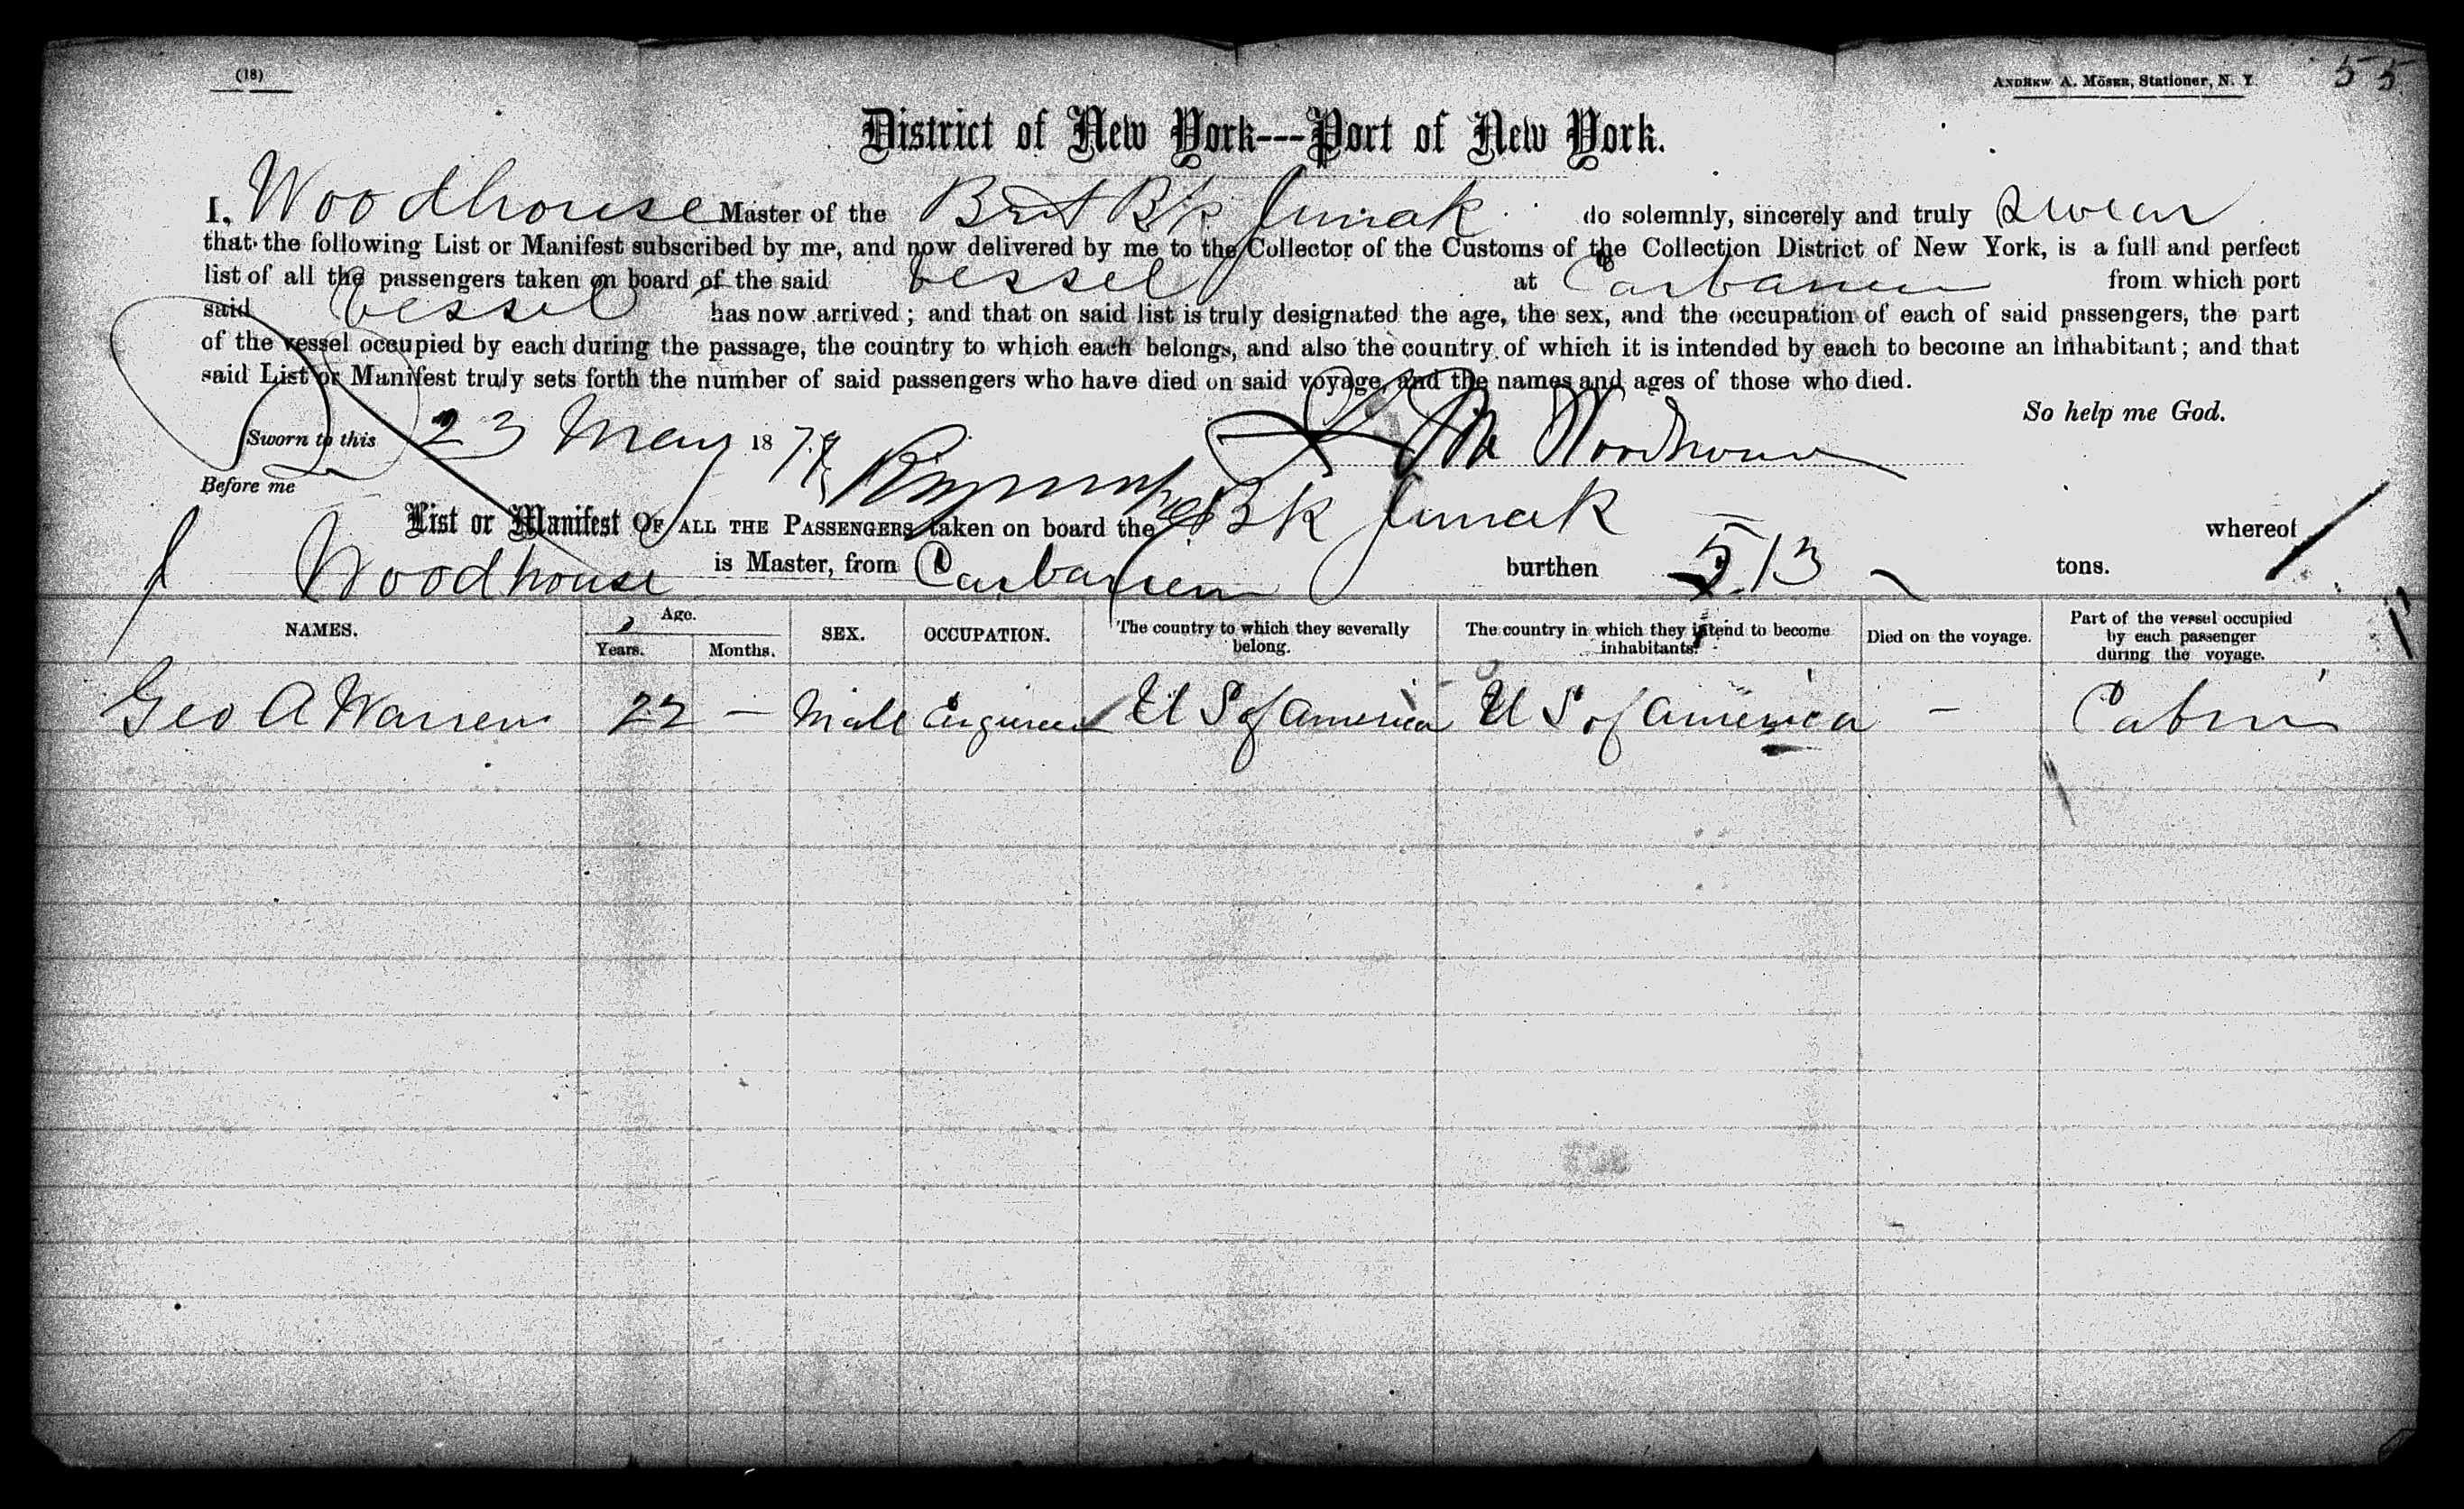 (18)
Andrew A. Möser, Stationer, N. Y. 55
District of New York---Port of New York.
I, Woodhouse Master of the Brit Bk do solemnly, sincerely and truly swear
that the following List or Manifest subscribed by me, and now delivered by me to the Collector of the Customs of the Collection District of New York, is a full and perfect
list of all the passengers taken on board of the said vessel at Caibarien from which port
said vessel has now arrived; and that on said list is truly designated the age, the sex, and the occupation of each of said passengers, the part
of the vessel occupied by each during the passage, the country to which each belongs, and also the country of which it is intended by each to become an inhabitant; and that
said List or Manifest truly sets forth the number of said passengers who have died on said voyage, and the names and ages of those who died.
So help me God.
Sworn to this 23 May 1879 Woodhouse
Before me
List or Manifest OF ALL THE PASSENGERS taken on board the Bk whereof
Woodhouse is Master, from Caibarien burthen 513 tons.
NAMES. Age. Years. Months. SEX. OCCUPATION. The country to which they severally belong. The country in which they intend to become inhabitants. Died on the voyage. Part of the vessel occupied by each passenger during the voyage.
Geo A Warren 22 — Male Engineer U S of America U S of America — Cabin